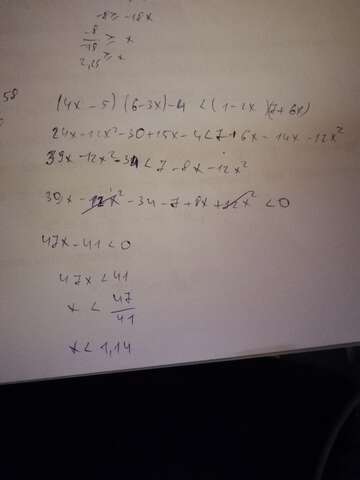 -8 ≥ -18x
-8/-18 ≥ x
2,25 ≥ x
58
(4x - 5) (6-3x) - 4 < (1-2x)(7+6x)
24x - 12x² - 30 + 15x - 4 < 7 + 6x - 14x - 12x²
39x - 12x² - 34 < 7 - 8x - 12x²
39x - 12x² - 34 - 7 + 8x + 12x² < 0
47x - 41 < 0
47x < 41
x < 47/41
x < 1,14